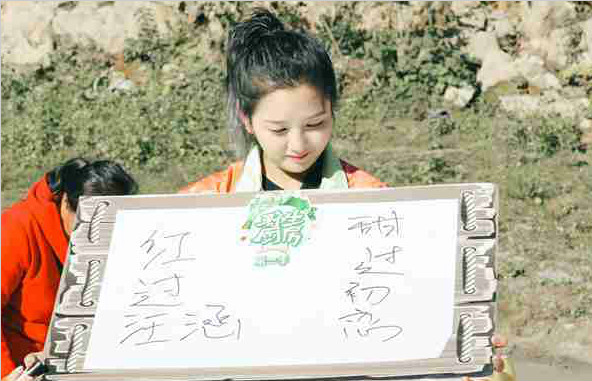 红过汪涵
甜过初恋